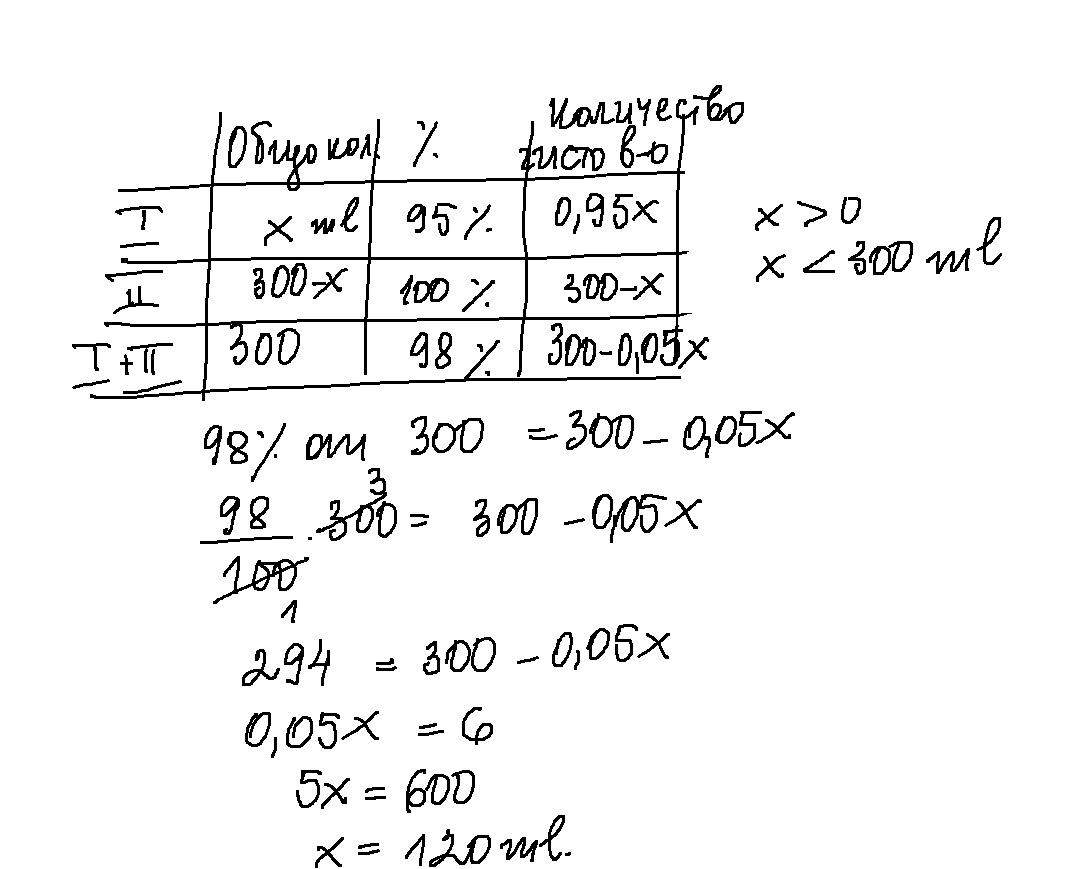 Общо кол % Количество чисто в-о
I x ml 95% 0,95x
x > 0
II 300-x 100% 300-x
x < 300 ml
I+II 300 98% 300-0,05x
98% от 300 = 300 - 0,05x
98/100 . 300 3 = 300 - 0,05x
1
294 = 300 - 0,05x
0,05x = 6
5x = 600
x = 120 ml.